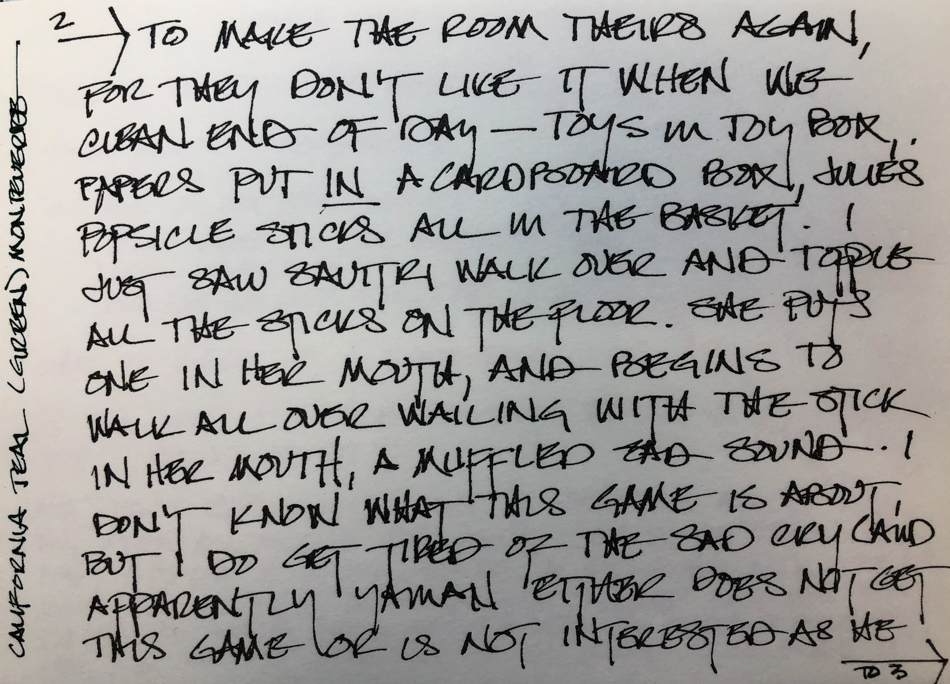 2 → TO MAKE THE ROOM THEIRS AGAIN,
FOR THEY DON'T LIKE IT WHEN WE
CLEAN END OF DAY — TOYS IN TOY BOX,
PAPERS PUT IN A CARDBOARD BOX, JULIES
POPSICLE STICKS ALL IN THE BASKET. I
JUST SAW SAVITRI WALK OVER AND TOPPLE
ALL THE STICKS ON THE FLOOR. SHE PUTS
ONE IN HER MOUTH, AND BEGINS TO
WALK ALL OVER WAILING WITH THE STICK
IN HER MOUTH, A MUFFLED SAD SOUND. I
DON'T KNOW WHAT THIS GAME IS ABOUT,
BUT I DO GET TIRED OF THE SAD CRY (AND
APPARENTLY YAMAN EITHER DOES NOT GET
THIS GAME OR IS NOT INTERESTED AS HE
TO 3
CALIFORNIA TEAL (GREEN) MONTEVERDE